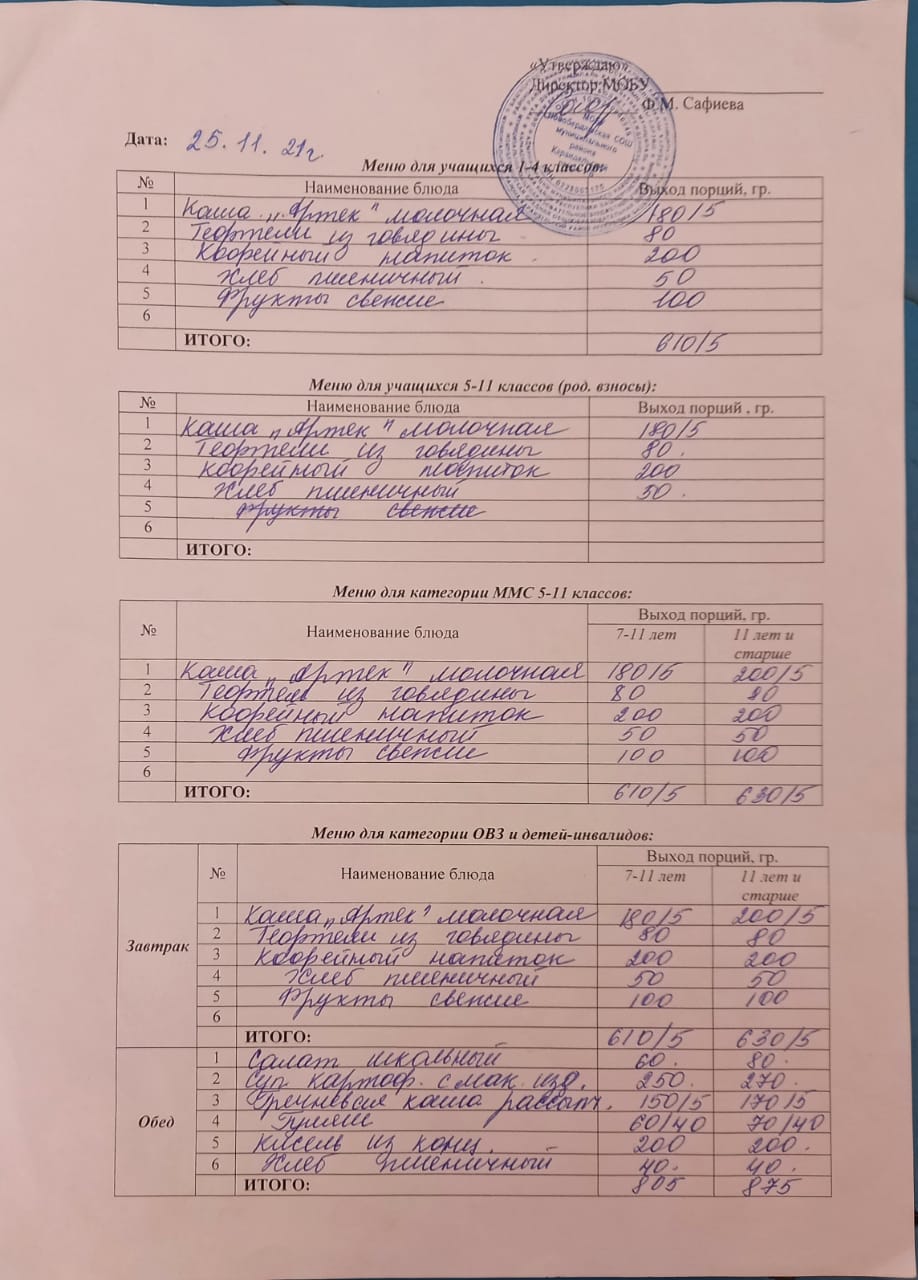 «Утверждаю»
Директор МОБУ
Ф.М. Сафиева
МОБУ
СОШ
муниципального
района
Дата: 25.11.21г.
Меню для учащихся 1-4 классов:
№ Наименование блюда Выход порций, гр.
1 Каша „Артек" молочная 180/5
2 Тефтели из говядины 80
3 Кофейный напиток 200
4 Хлеб пшеничный 50
5 Фрукты свежие 100
6
ИТОГО: 610/5
Меню для учащихся 5-11 классов (род. взносы):
№ Наименование блюда Выход порций , гр.
1 Каша „Артек" молочная 180/5
2 Тефтели из говядины 80.
3 Кофейный напиток 200
4 Хлеб пшеничный 50.
5 Фрукты свежие
6
ИТОГО:
Меню для категории ММС 5-11 классов:
№ Наименование блюда Выход порций, гр.
7-11 лет 11 лет и старше
1 Каша „Артек" молочная 180/5 200/5
2 Тефтели из говядины 80 80
3 Кофейный напиток 200 200
4 Хлеб пшеничный 50 50
5 Фрукты свежие 100 100
6
ИТОГО: 610/5 630/5
Меню для категории ОВЗ и детей-инвалидов:
№ Наименование блюда Выход порций, гр.
7-11 лет 11 лет и старше
Завтрак
1 Каша „Артек" молочная 180/5 200/5
2 Тефтели из говядины 80 80
3 Кофейный напиток 200 200
4 Хлеб пшеничный 50 50
5 Фрукты свежие 100 100
6
ИТОГО: 610/5 630/5
Обед
1 Салат школьный 60. 80.
2 Суп картоф. с мак. изд. 250. 270.
3 Гречневая каша рассыпч. 150/5 170/5
4 Гуляш 60/40 70/40
5 Кисель из конц. 200 200.
6 Хлеб пшеничный 40. 40.
ИТОГО: 805 875